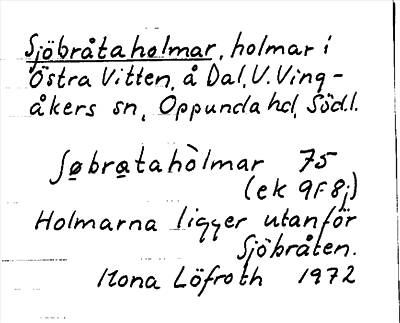 Sjöbråtaholmar, holmar i
Östra Vitten, å Dal, V. Ving-
åkers sn, Oppunda hd, Södl.
Søbrøtahòlmar 75
(ek 9F8j)
Holmarna ligger utanför
Sjöbråten.
Mona Löfroth 1972